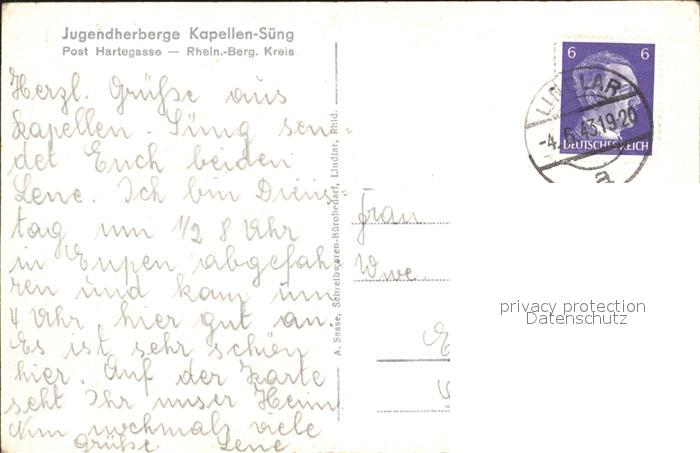 Jugendherberge Kapellen-Süng
Post Hartegasse — Rhein.-Berg. Kreis
Herzl. Grüße aus
Kapellen-Süng sen-
det Euch beiden
Lene. Ich bin Diens-
tag um 1/2 8 Uhr
in Eupen abgefah-
ren und kam um
4 Uhr hier gut an.
Es ist sehr schön
hier. Auf der Karte
seht Ihr unser Heim
Nun nochmals viele
Grüße Lene
A. Sasse, Schreibwaren-Bürobedarf, Lindlar, Rhld.
6 6
DEUTSCHES REICH
LINDLAR
-4.6.43.19-20
a
Frau
Wwe.
E
privacy protection
Datenschutz